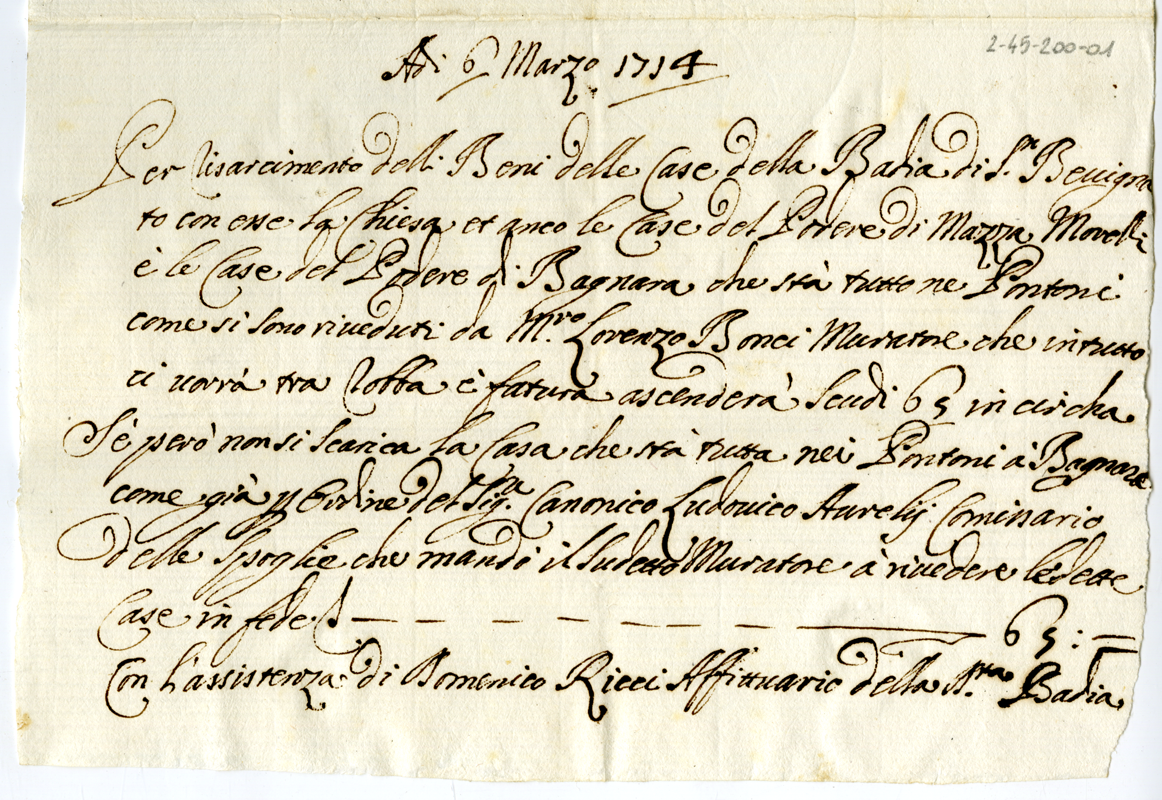 2-45-200-01
Adi 6 Marzo 1714
Per risarcimento delli Beni delle Case della Badia di S.n Bevigna
to con esse la Chiesa et anco le Case del Podere di Mazza Movelli
è le Case del Podere di Bagnara che stà tutto ne Pontoni
come si sono riveduti da M.ro Lorenzo Bonci Muratore che in tutto
ci vorrà tra robba è fatura ascenderà scudi 65 in circha
Sè però non si scarica la Casa che stà tutta nei Pontoni à Bagnara
come già p ordine del Sig.r Canonico Ludovico Aurelij Comissario
delle Spoglie che mandò il sudetto Muratore à rivedere le dette
Case in fede ∇ — — — — — — 65: —
Con l'assistenza di Domenico Ricci Affittuario della Badia